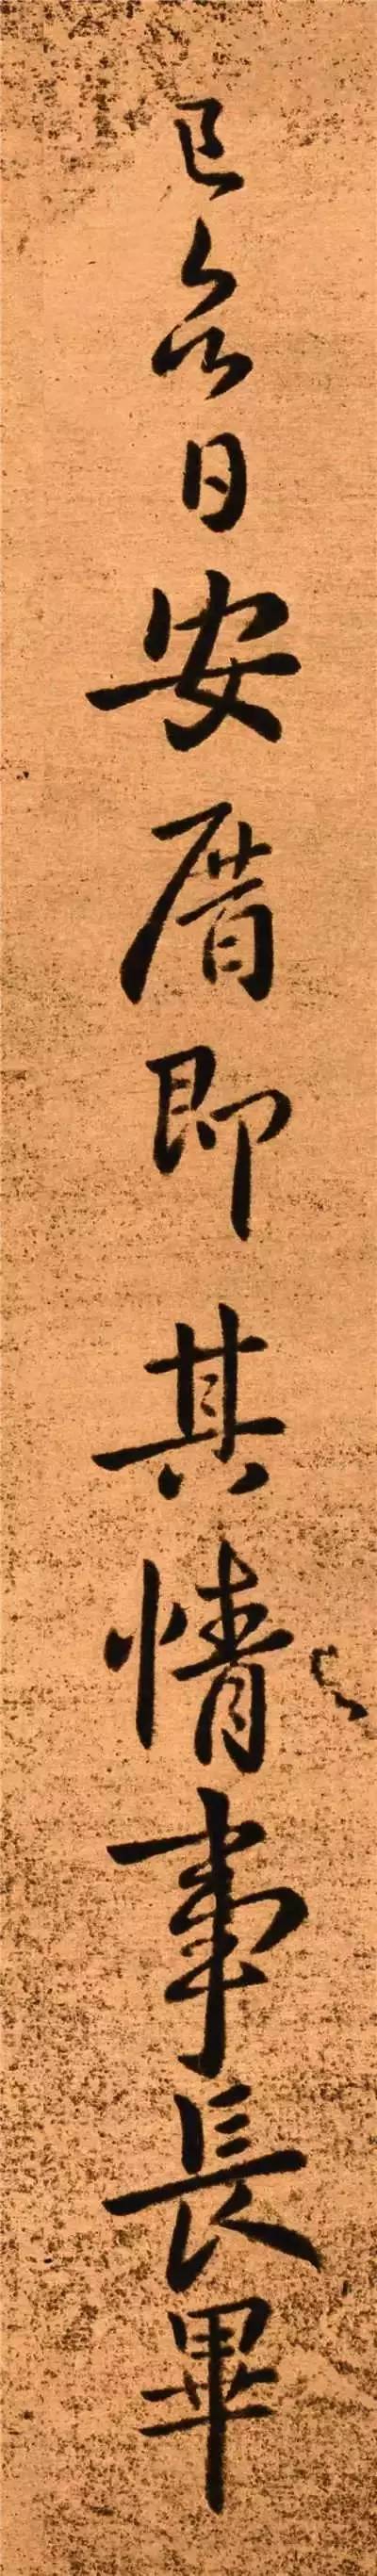 已日安厝即其情事長畢